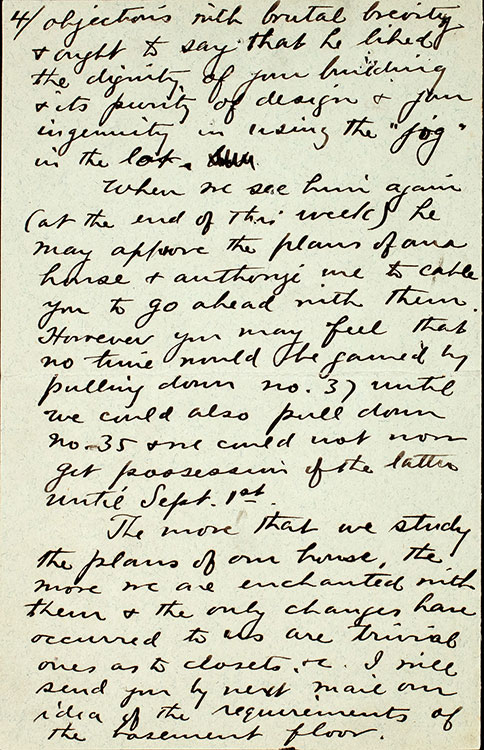 4/ objections with brutal brevity
& ought to say that he liked
the dignity of your building
& its purity of design & your
ingenuity in using the "jog"
in the lot.
When we see him again
(at the end of this week) he
may approve the plans of our
house & authorize me to cable
you to go ahead with them.
However you may feel that
no time would be gained by
pulling down no. 37 until
we could also pull down
no. 35 & we could not now
get possession of the latter
until Sept. 1st.
The more that we study
the plans of our house, the
more we are enchanted with
them & the only changes have
occurred to us are trivial
ones as to closets, &c. I will
send you by next mail our
idea of the requirements of
the basement floor.